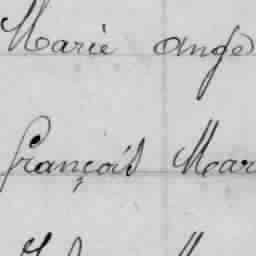 Marie Ange
François Mar